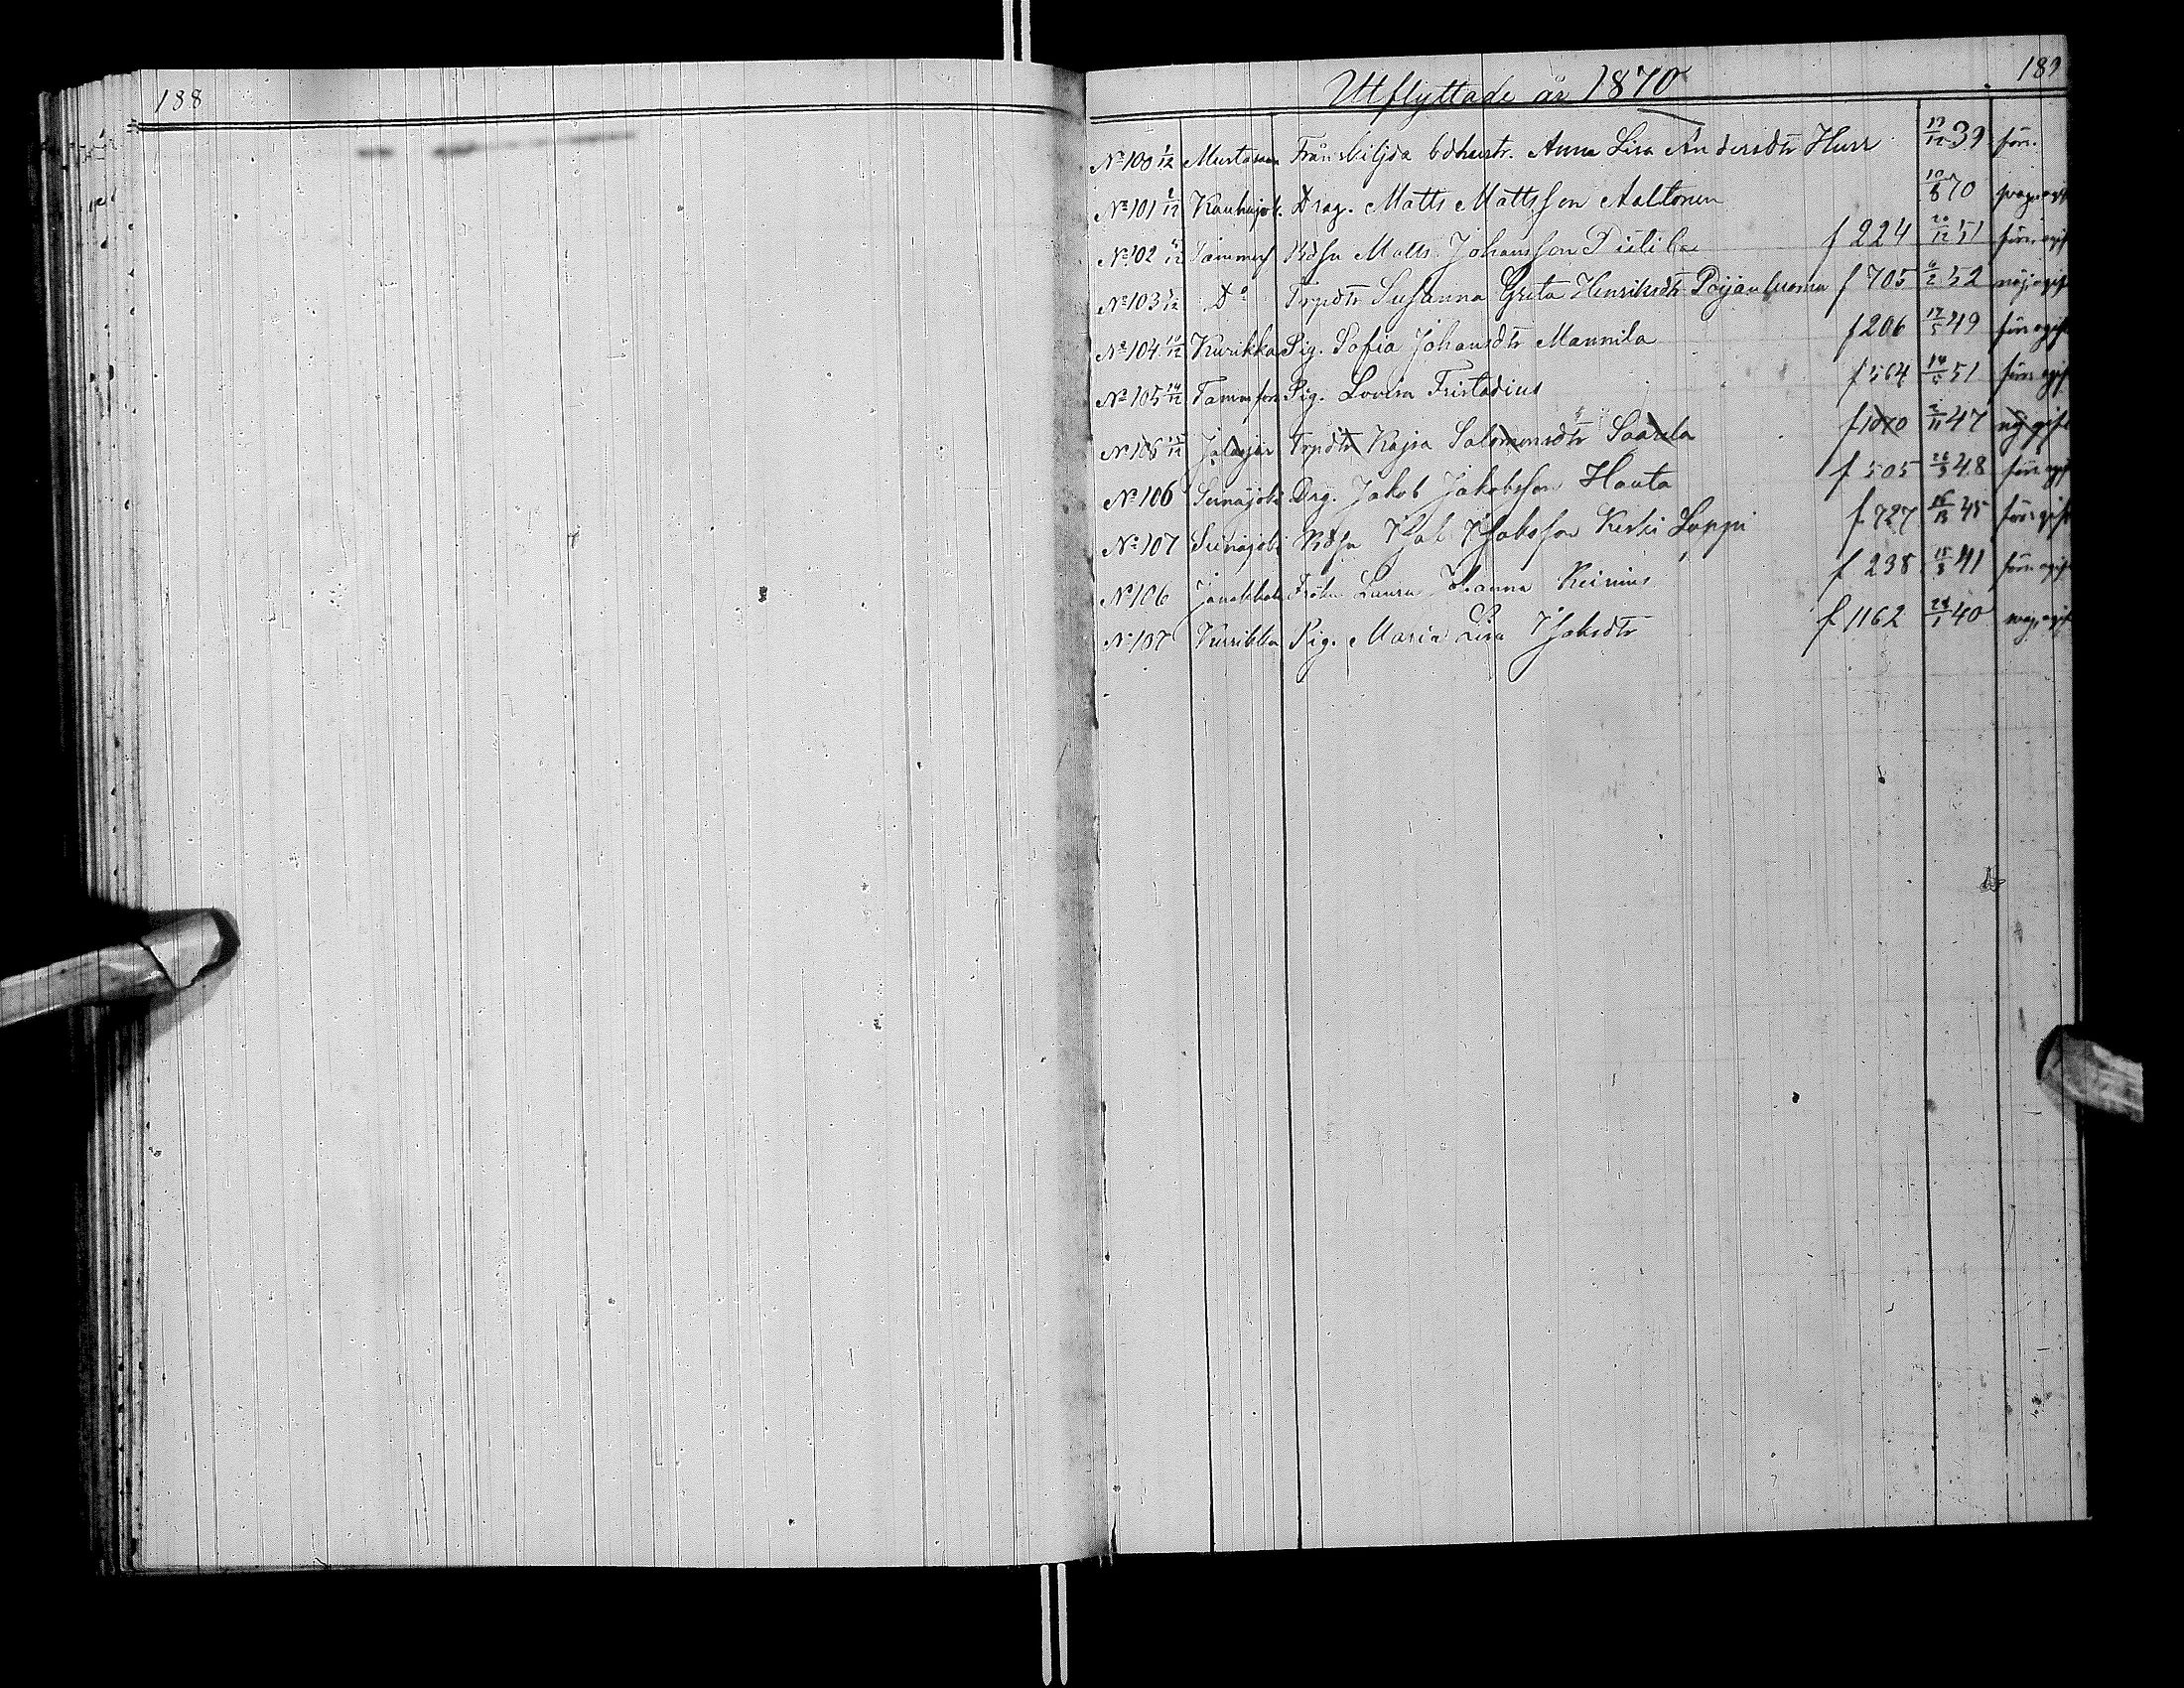 188
189
Utflyttade år 1870
No 100 1/12 Mustasaari Frånskiljda bdhustr. Anna Lisa Andersdtr Hurr 17/12 39 förs.
No 101 2/12 Kauhajok. Drag. Matts Mattsson Aaltonen 10/8 70 svag. ogift
No 102 5/12 Tammerf Bdsn Matts Johansson Pietilä f 224 20/12 51 förs. ogift
No 103 5/12 Do Trpdtr Susanna Greta Henriksdtr Poijanluoma f 705 6/2 52 nöj. ogift
No 104 10/12 Kurikka Pig. Sofia Johansdtr Mannila f 206 17/5 49 förs ogift
No 105 14/12 Tammerfors Pig. Lovisa Fristadius f 564 14/5 51 förs ogift
No 106 15/12 Jalasjär Trpdtr Kajsa Salomonsdtr Saarela f 1070 2/11 47 nöj ogift
No 106 Seinäjoki Drg. Jakob Jakobsson Hauta f 505 26/3 48 förs ogift
No 107 Seinäjoki Bdsn Isak Isaksson Keski Loppi f. 727 45 förs ogift
No 106 Janakkala Frökn Laura Johanna Reinius f 238 15/3 41 förs ogift
No 107 Kurikka Pig. Maria Lisa Isaksdtr f 1162 24/1 40 svag. ogift